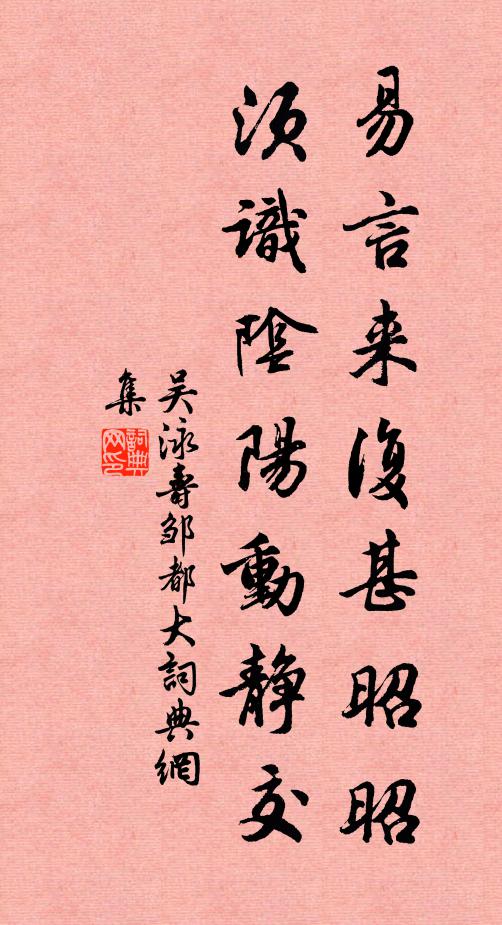 易言来復甚昭昭
須識陰陽動靜交
吴泳壽邹都大詞典網
集
詞典網印